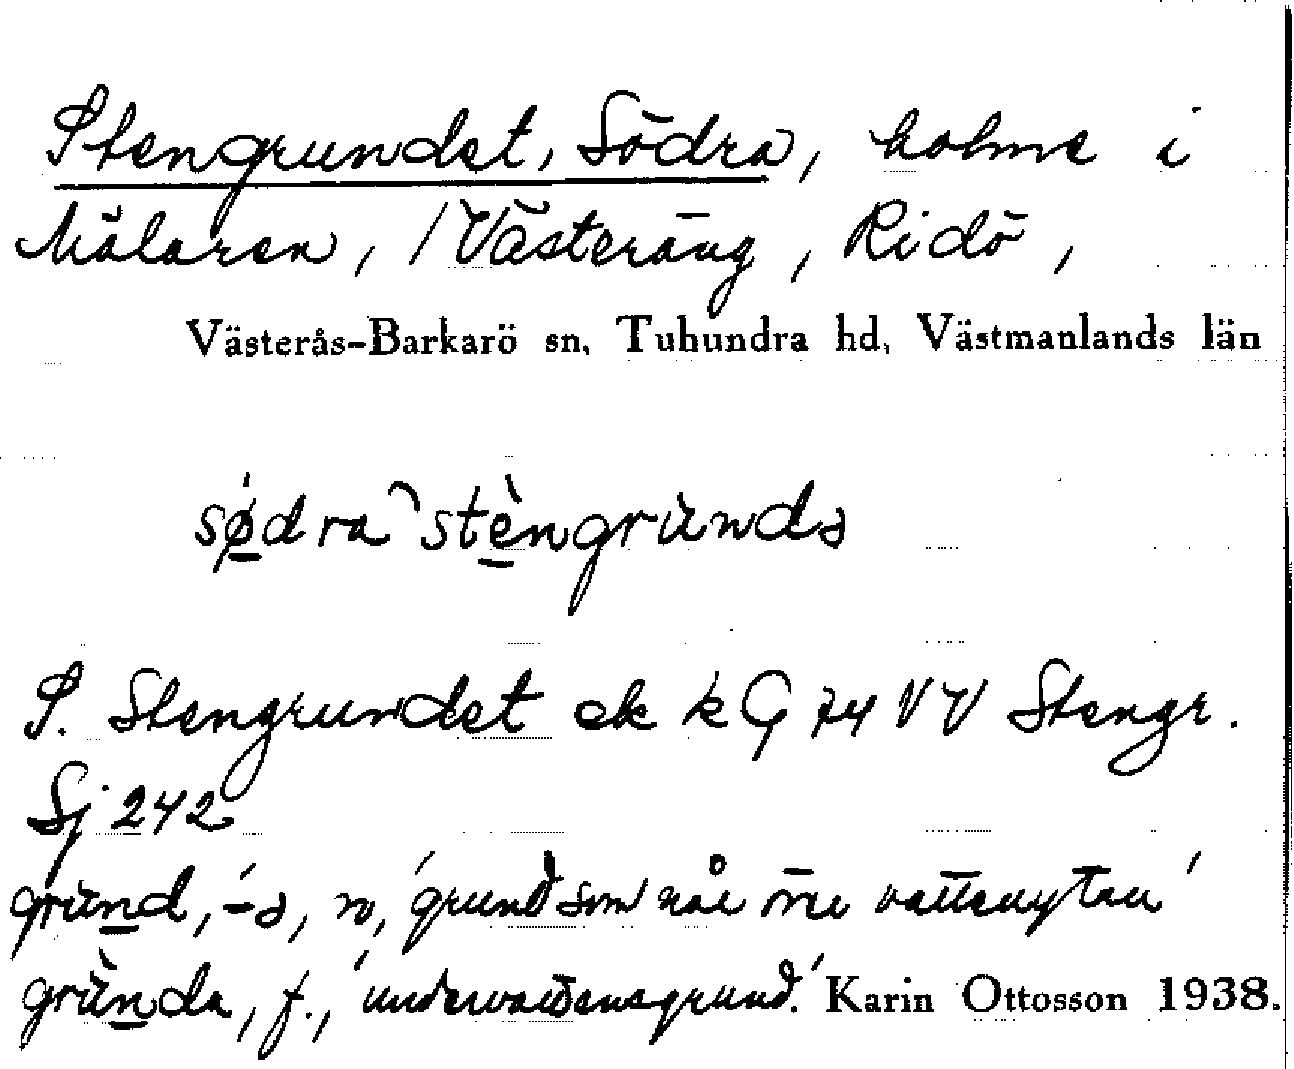 Stengrundet, Södra, holme i
Mälaren, / Västeräng, Ridö,
Västerås-Barkarö sn, Tuhundra hd, Västmanlands län
sø̀dra stèngrùndə
S. Stengrundet ek k G 74 VV Stengr.
Sj 242
grund, -ə, n, 'grund som når över vattenytan'
grùnda, f., 'undervattensgrund.' Karin Ottosson 1938.